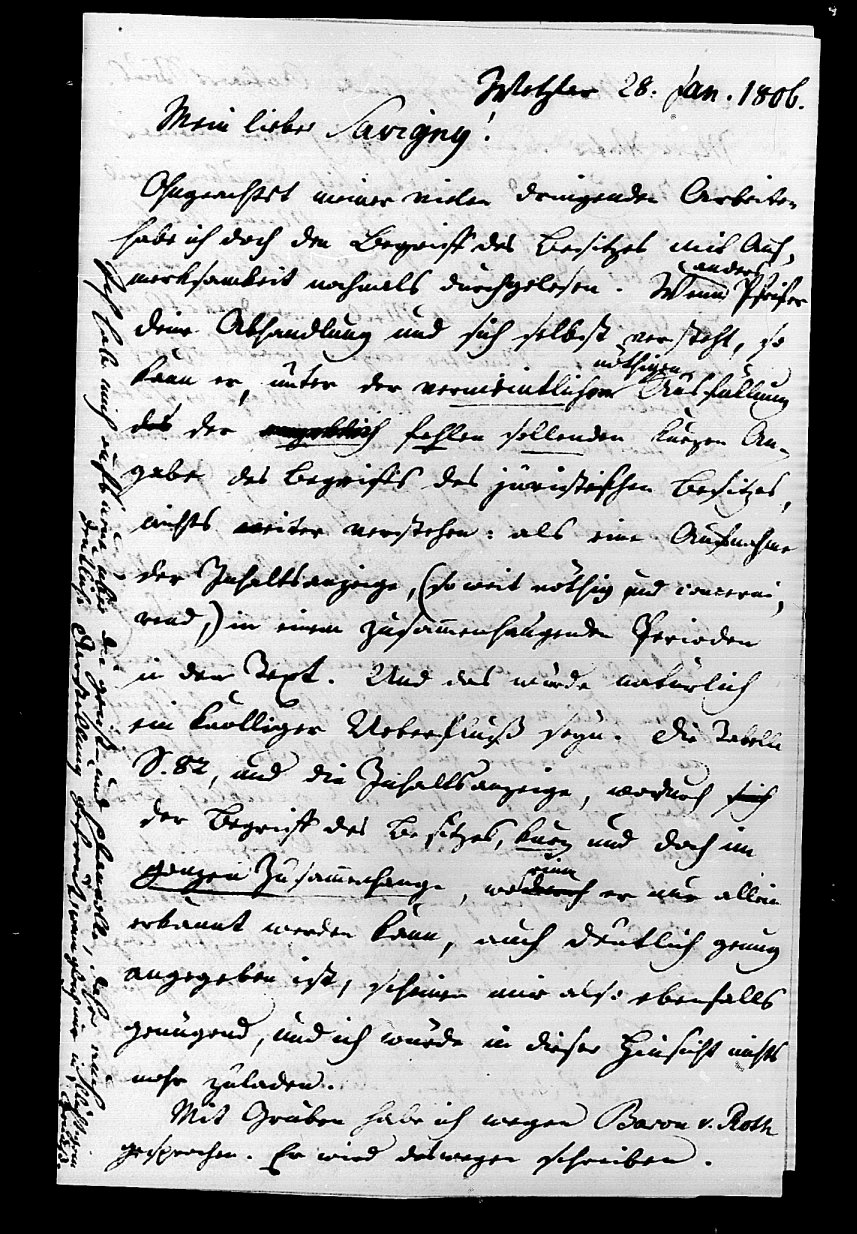 Wetzlar 28. Jan. 1806.
Mein lieber Savigny!
Ohngeachtet meiner vielen dringenden Arbeiten
habe ich doch den Begriff des Besitzes mit Auf-
merksamkeit nochmals durchgelesen. Wenn anders Pfeifer
deine Abhandlung und sich selbst versteht, so
kann er, unter der vermeintlichen nöthigen Ausfüllung
des der fehlen sollenden kurzen An-
gabe des Begriffs des juristischen Besitzes,
nichts weiter verstehen: als eine Aufnahme
der Inhaltsanzeige, (so weit nöthig und concerni-
rend,) in einem zusammenhangenden Perioden
in den Text. Und das würde natürlich
ein knolliger Ueberfluß seyn. Die Tabelle
S. 82, und die Inhaltsanzeige, wodurch sich
der Begriff des Besitzes, kurz und doch im
ganzen Zusammenhange, worinn er nur allein
erkannt werden kann, auch deutlich genug
angegeben ist, scheinen mir also ebenfalls
genügend, und ich würde in dieser Hinsicht nichts
mehr zuladen.
Mit Gruben habe ich wegen Baron v. Roth
gesprochen. Er wird deswegen schreiben.
Ich habe mich aufs neue über die große und
deutliche Darstellung gefreut, wenn gleich nur